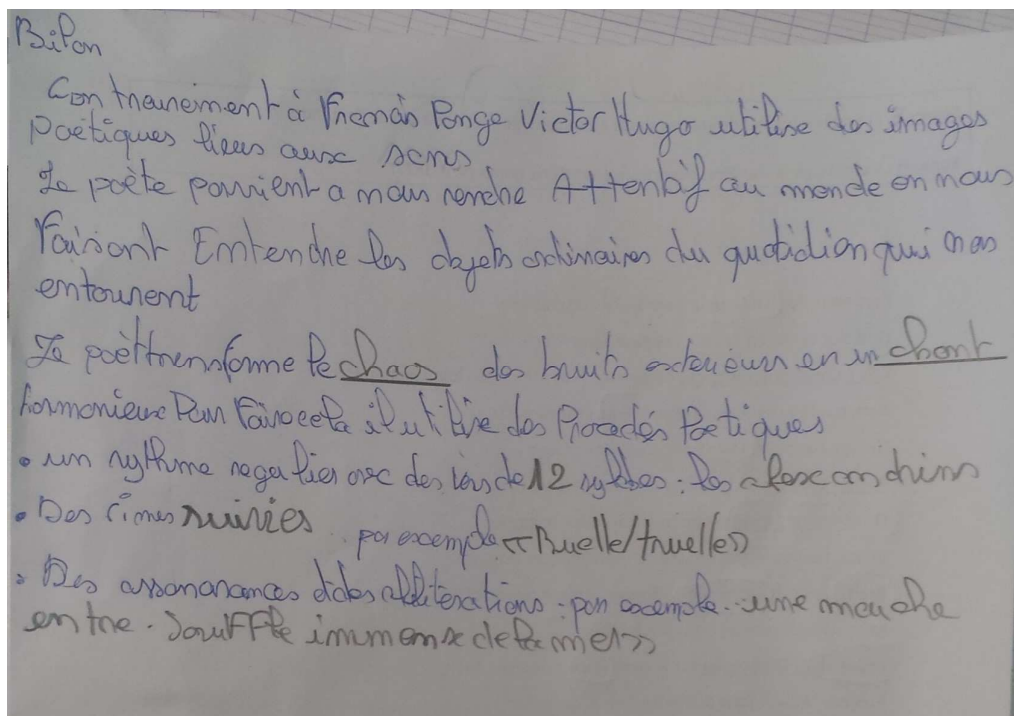 Bilan
Contrairement à Francis Ponge Victor Hugo utilise des images
Poètiques liees aux sens
Le poète parvient a nous rendre Attentif au monde en nous
Faisant Entendre les objets ordinaires du quotidien qui nos
entourent
Le poèttransforme le chaos des bruits exterieurs en un chant
harmonieux Pour Faire cela il utilise des Procedés Poetiques
• un rythme regulier avec des vers de 12 syllabes : les alexandrins
• Des rimes suivies par exemple « Ruelle/truelle »
• Des assonanances et des alliterations : par exemple .. une mouche
entre . Souffle immense de la mer »